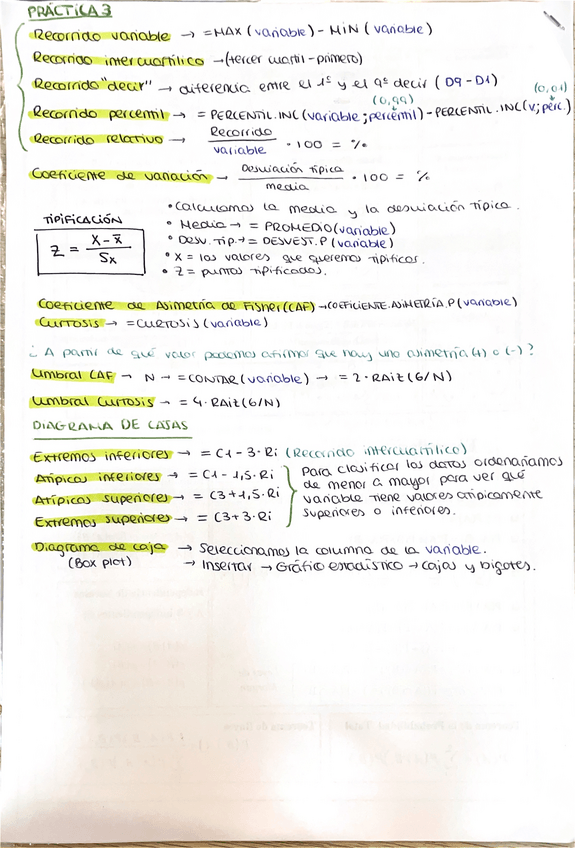 PRÁCTICA 3
Recorrido variable → =MAX (variable) - MIN (variable)
Recorrido intercuartílico → (tercer cuartil - primero)
Recorrido "decir" → diferencia entre el 1º y el 9º decir (D9 - D1)
(0,99) (0,01)
Recorrido percentil → = PERCENTIL.INC (variable; percentil) - PERCENTIL.INC (v; perc.)
Recorrido relativo → Recorrido / variable · 100 = %
Coeficiente de variación → Desviación típica / media · 100 = %
• Calculamos la media y la desviación típica.
TIPIFICACIÓN
• Media → = PROMEDIO (variable)
Z = X - x̄ / Sx
• Desv. Tip. → = DESVEST.P (variable)
• X = los valores que queremos tipificar.
• Z = puntos tipificados.
Coeficiente de Asimetría de Fisher (CAF) → COEFICIENTE.ASIMETRÍA.P (variable)
Curtosis → = CURTOSIS (variable)
¿A partir de qué valor podemos afirmar que hay una asimetría (+) o (-)?
Umbral CAF → N → = CONTAR (variable) → = 2 · RAIZ (6/N)
Umbral Curtosis → = 4 · RAIZ (6/N)
DIAGRAMA DE CAJAS
Extremos inferiores → = C1 - 3 · Ri (Recorrido intercuartílico)
Atípicos inferiores → = C1 - 1,5 · Ri
Atípicos superiores → = C3 + 1,5 · Ri
Extremos superiores → = C3 + 3 · Ri
Para clasificar los datos ordenaríamos
de menor a mayor para ver qué
variable tiene valores atípicamente
superiores o inferiores.
Diagrama de caja → Seleccionamos la columna de la variable.
(Box plot) → Insertar → Gráfico estadístico → cajas y bigotes.